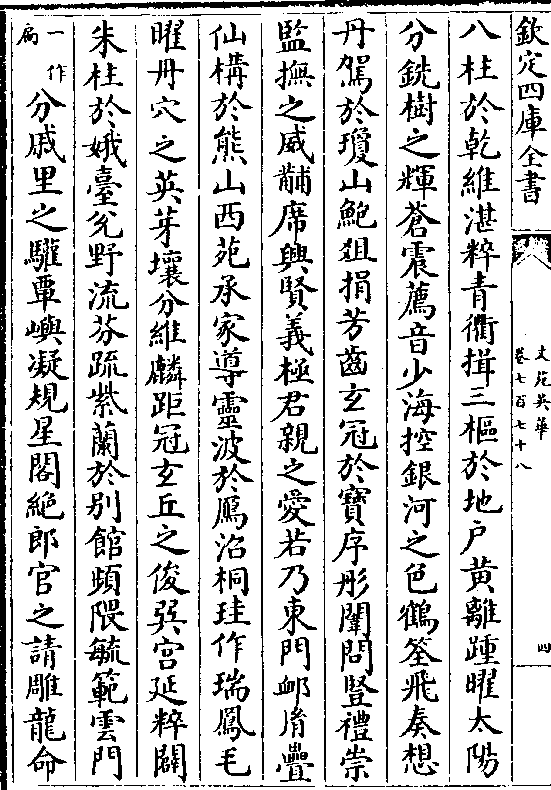 欽定四庫全書
文苑英華
卷七百七十八
四
八柱於乾維湛粹青衢揖三樞於地户黄離踵曜太陽
分銑樹之輝蒼震薦音少海控銀河之色鶴筌飛奏想
丹駕於瓊山鮑俎捐芳齒玄冠於寶序彤闈問豎禮崇
監撫之威黼席興賢義極君親之愛若乃東門邮㡿疊
仙構於熊山西苑承家導靈波於鴈沼桐珪作瑞鳳毛
曜丹穴之英芽壤分維麟距冠玄丘之俊巽宫延粹闢
朱柱於娥臺兊野流芬疏紫蘭於别館頻隈毓範雲門
一作扃分戚里之驩覃嶼凝規星閣絶郎官之請雕龍命